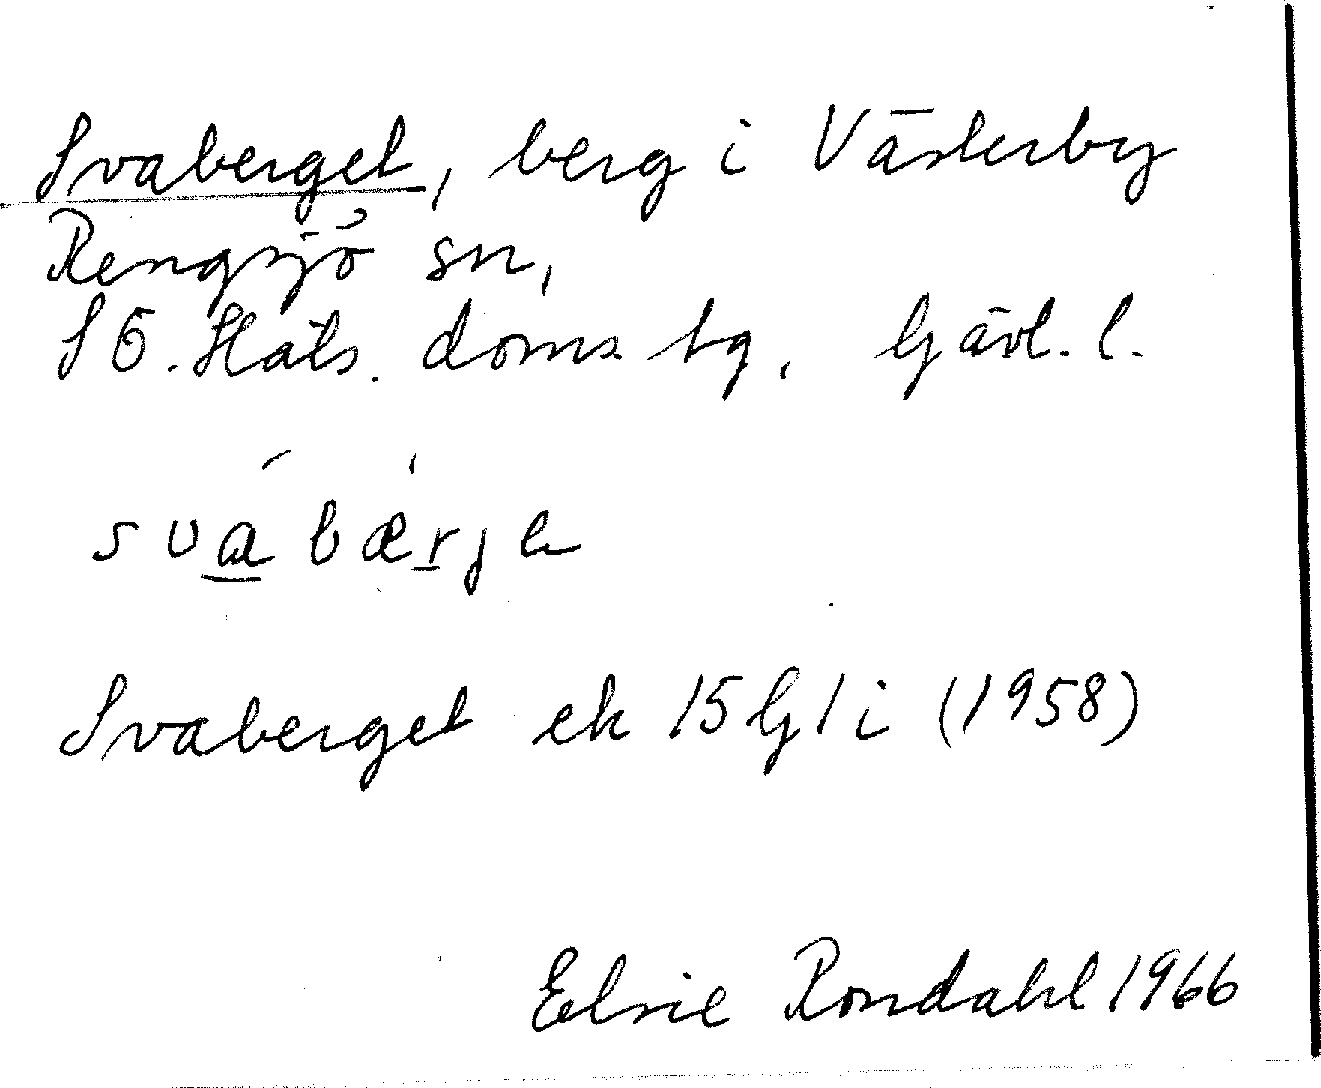 Svaberget, berg i Västerby
Rengsjö sn,
SÖ. Häls. doms tg, Gävl. l.
svabærje
Svaberget ek 15 G 1 i (1958)
Elsie Rondahl 1966